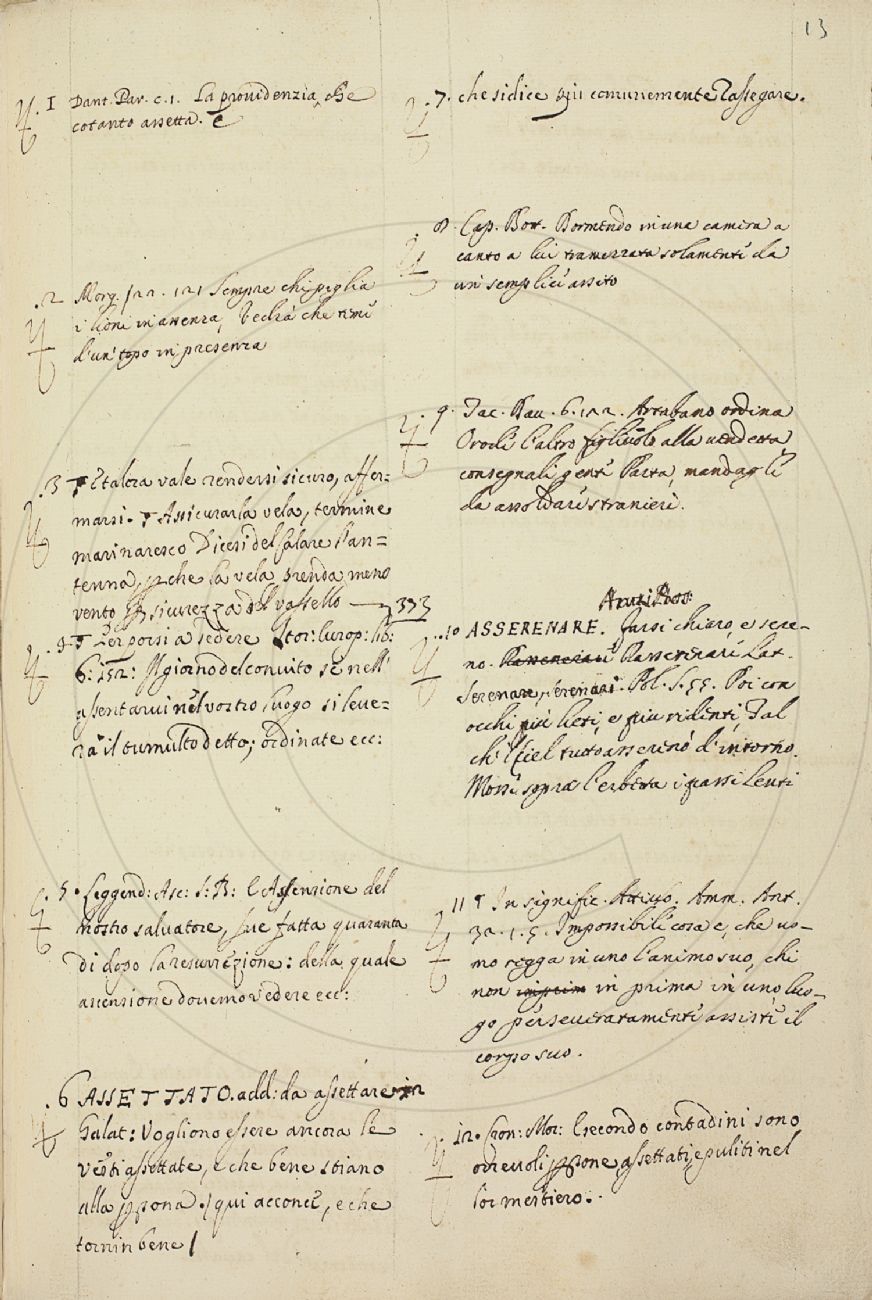 13
1 Dant. Par. c. 1. La providenzia, che
cotanto assetta. è
.2 Morg. 22. 121 Sempre chi piglia
i lioni in assenza, Vedrà che temè
d'un topo in presenza
.3 ¶ E talora vale rendersi sicuro, affer=
marsi. ¶ Assicurar la vela, termine
marinaresco Dicesi del Calare l'an=
tenna, p che la vela prenda meno
vento p sicurezza del vassello 333
.4 ¶ Per porsi a sedere Stor: Europ: lib:
6: 152: Il giorno del convito se nell'
assentarvi nel vostro luogo si leve=
rà il tumulto detto; ordinate ecc:
5. Leggend: Asc: S: B: l'Assensione del
nostro salvatore, fue fatta quaranta
Di dopo la resurrezione: della quale
ascensione dovemo vedere ecc:
.6 ASSETTATO. add: da assettare in
Galat: Vogliono essere ancora le
vesti assettate, e che bene stiano
alla psona / qui acconce, e che
tornin bene /
.7. che si dice più comunemente Rassegare.
8. Cap. Bott. Dormendo in una camera a
canto a lui tramezzata solamente da
un semplice assito
.9. Tac. Dav. 6. 122. Artabano ordina
Orode l'altro figliuolo alla vendetta
consegnali gente Parta, mandagli
da assoldare stranieri.
..10 ASSERENARE. farsi chiaro, e sere-
no. Rasserenare Lat.
Serenare, Pol. S. 55. Poi con
occhi più lieti, e più ridenti, Tal
ch'l ciel tutto asserenò d'intorno.
Mosse sopra l'erbetta i passi lenti
11 ¶ In signific. Attivo. Amm. Ant.
32. 1. 5. Impossibile cosa e, che uo-
mo regga in uno l'animo suo, chi
non in prima in uno luo-
go perseveratamente assiste il
corpo suo.
12. Cron: Mor: E secondo contadini sono
orrevoli psone, assettati, e puliti nel
lor mestiero..